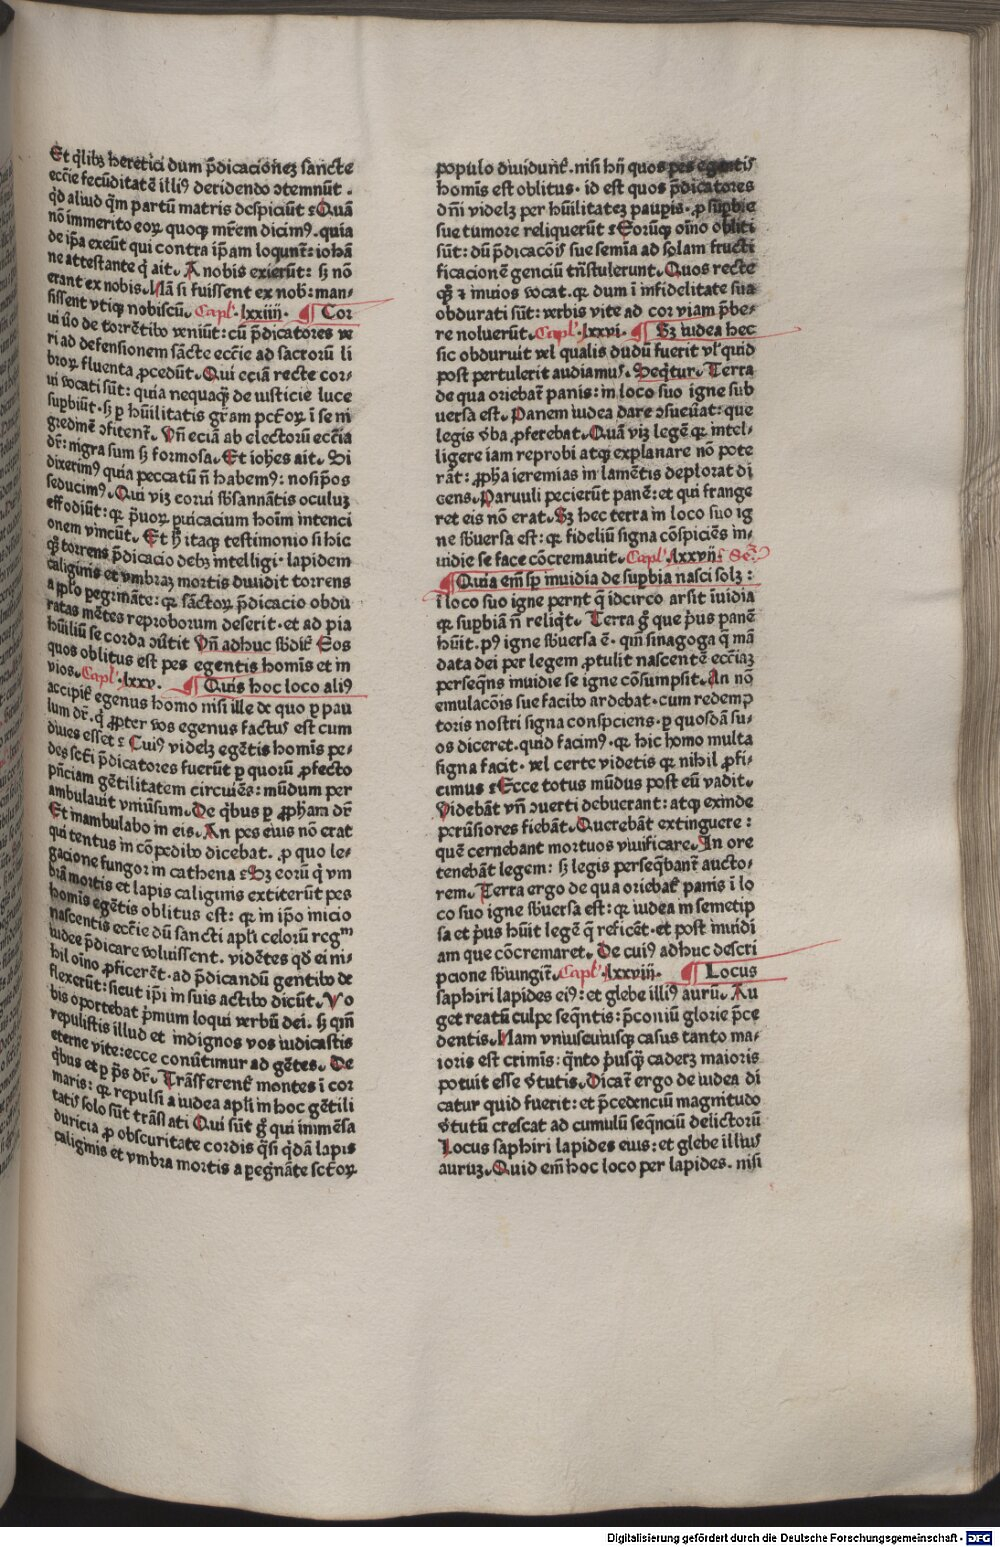 Et q̃libꝫ heretici dum p̃dicacionẽ sancte
ecc̃ie fecũditatẽ illiꝰ deridendo ↄtemnũt .
q̃d aliud q̃m partũ matris despiciũt ? Quã
nõ immerito eoꝝ quoqꝫ mr̃em dicimꝰ . quia
de ip̃a exeũt qui contra ip̃am loqunt᷑ : iohã
ne attestante q̃ ait . A nobis exierũt : sꝫ nõ
erant ex nobis . Nã si fuissent ex nob̃ : man-
sissent vtiqꝫ nobiscũ . Capl̃ . lxxiiij . ¶ Cor
ui ṽo de torrẽtibꝰ veniũt : cũ p̃dicatores ve
ri ad defensionem sãcte ecc̃ie ad sacrorũ li
broꝝ fluenta ꝓcedũt . Qui eciã recte cor-
ui vocati sũt : quia nequaqꝫ de iusticie luce
suꝑbiũt . sꝫ ꝑ hũilitatis gr̃am pctõꝝ ĩ se ni
gredinẽ ↄfitent᷑ . Vñ eciã ab electorũ ecc̃ia
dr̃ : nigra sum sꝫ formosa . Et ioh̃es ait . Si
dixerimꝰ quia peccatũ ñ habemꝰ : nosip̃os
seducimꝰ . Qui viꝫ corui sb̃sannãtis oculuꝫ
effodiũt : qꝛ p̃uoꝝ puicacium hoĩm intenci
onem vincũt . Et h̃ itaqꝫ testimonio si hic
qꝫ torrens p̃dicacio debꝫ intelligi . lapidem
caliginis et vmbraꝫ mortis diuidit torrens
a ppl̃o ꝑegrinãte : qꝛ sãctoꝝ p̃dicacio obdu
ratas mẽtes reproborum deserit . et ad pia
hũiliũ se corda ↄũtit Vñ adhuc sb̃dit᷑ Eos
quos oblitus est pes egentis homĩs et in
vios . Capl̃ . lxxv . ¶ Quis hoc loco aliꝰ
accipit᷑ egenus homo nisi ille de quo ꝑ pau
lum dr̃ . q̃ ꝓpter vos egenus factus est cum
diues esset ? Cuiꝰ videlꝫ egẽtis homĩs pe-
des sc̃ti p̃dicatores fuerũt ꝑ quorũ ꝓfecto
pñciam gẽtilitatem circuiẽs : mũdum per
ambulauit vniũsum . De q̃bus ꝑ ꝓph̃am dr̃
Et inambulabo in eis . An pes eius nõ erat
qui tentus in cõpedibꝰ dicebat . ꝓ quo le-
gacione fungor in cathena ? Sꝫ eorũ q̃ vm
brã mortis et lapis caliginis extiterũt pes
homĩs egẽtis oblitus est : qꝛ in ip̃o inicio
nascentis ecc̃ie dũ sancti apl̃i celorũ regᵐ
iudee p̃dicare voluissent . vidẽtes qd̃ ei ni-
hil oĩno ꝓficerẽt . ad p̃dicandũ gentibꝰ de
flexerũt : sicut ip̃i in suis actibꝰ dicũt . Vo
bis oportebat p̃mum loqui verbũ dei . sꝫ qm̃
repulistis illud et indignos vos iudicastis
eterne vite : ecce conũtimur ad gẽtes . De
q̃bus et ꝑ p̃s dr̃ . Trãsferent᷑ montes ĩ cor
maris : qꝛ repulsi a iudea apl̃i in hoc gẽtili
tatis solo sũt trãslati Qui sũt g̃ qui immẽsa
duricia ꝓ obscuritate cordis q̃si q̃dã lapis
caliginis et vmbra mortis a ꝑegnãte sctõꝝ
populo diuidunt᷑ . nisi hij quos pes egentis
homĩs est oblitus . id est quos p̃dicatores
dñi videlꝫ per hũilitateꝫ pauꝑis . ꝓ suꝑbie
sue tumore reliquerũt ? Eorũqꝫ oĩno obliti
sũt : dũ p̃dicacõis sue semĩa ad solam fructi
ficacionẽ genciũ tñstulerunt . Quos recte
qꝫ ⁊ inuios vocat . qꝛ dum ĩ infidelitate sua
obdurati sũt : verbis vite ad cor viam p̃be-
re noluerũt . Capl̃ . lxxvi . ¶ Sꝫ iudea hec
sic obduruit vel qualis dudũ fuerit vl̃ quid
post pertulerit audiamus . Seq̃tur . Terra
de qua oriebat᷑ panis : in loco suo igne sub
uersa est . Panem iudea dare ↄsueũat : que
legis ṽba ꝓferebat . Quã viꝫ legẽ qꝛ intel-
ligere iam reprobi atqꝫ explanare nõ pote
rãt : ꝓph̃a ieremias in lamẽtis deplorat di
cens . Paruuli pecierũt panẽ : et qui frange
ret eis nõ erat . Sꝫ hec terra in loco suo ig
ne sb̃uersa est : qꝛ fideliũ signa cõspiciẽs in-
uidie se face cõcremauit . Capl̃ . lxxvij
¶ Quia em̃ sꝑ inuidia de suꝑbia nasci solꝫ :
ĩ loco suo igne perijt q̃ idcirco arsit ĩuidia
qꝛ suꝑbiã ñ reliq̃t . Terra g̃ que p̃us panẽ
hũit . pꝰ igne sb̃uersa ẽ . qm̃ sinagoga q̃ mã
data dei per legem ꝓtulit nascentẽ ecc̃iaꝫ
perseq̃ns inuidie se igne cõsumpsit . An nõ
emulacõis sue facibꝰ ardebat . cum redemp
toris nostri signa conspiciens . ꝑ quosdã su-
os diceret . quid facimꝰ . qꝛ hic homo multa
signa facit . vel certe videtis qꝛ nihil ꝓfi-
cimus ? Ecce totus mũdus post eũ vadit .
Videbãt vñ ↄuerti debuerant : atqꝫ exinde
peruersiores fiebãt . Querebãt extinguere :
quẽ cernebant mortuos viuificare . In ore
tenebãt legem : sꝫ legis perseq̃bant᷑ aucto-
rem . Terra ergo de qua oriebat᷑ panis ĩ lo
co suo igne sb̃uersa est : qꝛ iudea in semetip
sa et p̃us hũit legẽ q̃ reficẽt . et post inuidi
am que cõcremaret . De cuiꝰ adhuc descri
pcione sb̃iungit᷑ . Capl̃ . lxxviij . ¶ Locus
saphiri lapides eiꝰ : et glebe illiꝰ aurũ . Au
get reatũ culpe seq̃ntis : p̃coniũ glorie p̃ce
dentis . Nam vniuscuiusqꝫ casus tanto ma-
ioris est crimĩs : q̃nto p̃usqꝫ cadeꝫ maioris
potuit esse ṽtutis . Dicat᷑ ergo de iudea di
catur quid fuerit : et p̃cedenciũ magnitudo
ṽtutũ crescat ad cumulũ seq̃nciũ delictorũ
Locus saphiri lapides eius : et glebe illius
auruꝫ . Quid em̃ hoc loco per lapides . nisi
Digitalisierung gefördert durch die Deutsche Forschungsgemeinschaft - DFG